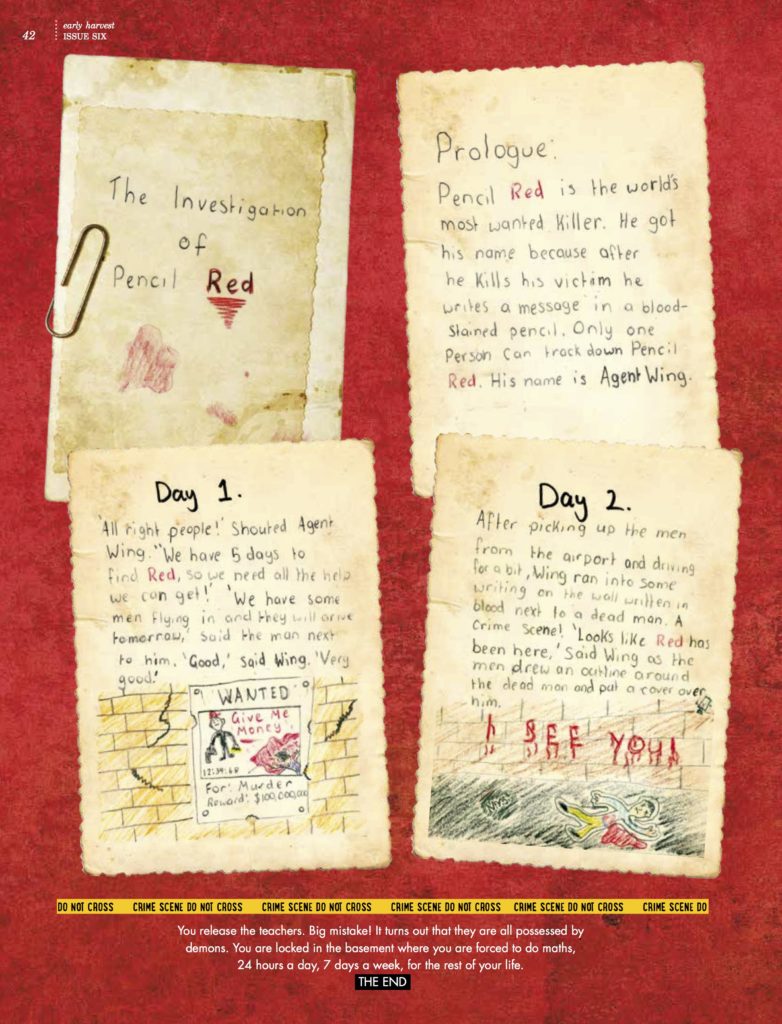 42
early harvest
ISSUE SIX
The Investigation
of
Pencil Red
Prologue:
Pencil Red is the world's
most wanted Killer. He got
his name because after
he Kills his victim he
writes a message in a blood-
stained pencil. Only one
Person can track down Pencil
Red. His name is Agent Wing.
Day 1.
'All right people!' Shouted Agent
Wing. 'We have 5 days to
find Red, so we need all the help
we can get!' 'We have some
men flying in and they will arive
tomorrow,' said the man next
to him. 'Good,' said Wing. 'Very
good.'
WANTED
Give Me
Money!
12:39:68
For: Murder
Reward: $100,000,000
Day 2.
After picking up the men
from the airport and driving
for a bit, Wing ran into some
writing on the wall written in
blood next to a dead man. A
Crime Scene! 'Looks like Red has
been here,' Said Wing as the
men drew an outline around
the dead man and put a cover over
him.
I SEE YOU!
DO NOT CROSS CRIME SCENE DO NOT CROSS CRIME SCENE DO NOT CROSS CRIME SCENE DO NOT CROSS CRIME SCENE DO NOT CROSS CRIME SCENE DO
You release the teachers. Big mistake! It turns out that they are all possessed by
demons. You are locked in the basement where you are forced to do maths,
24 hours a day, 7 days a week, for the rest of your life.
THE END